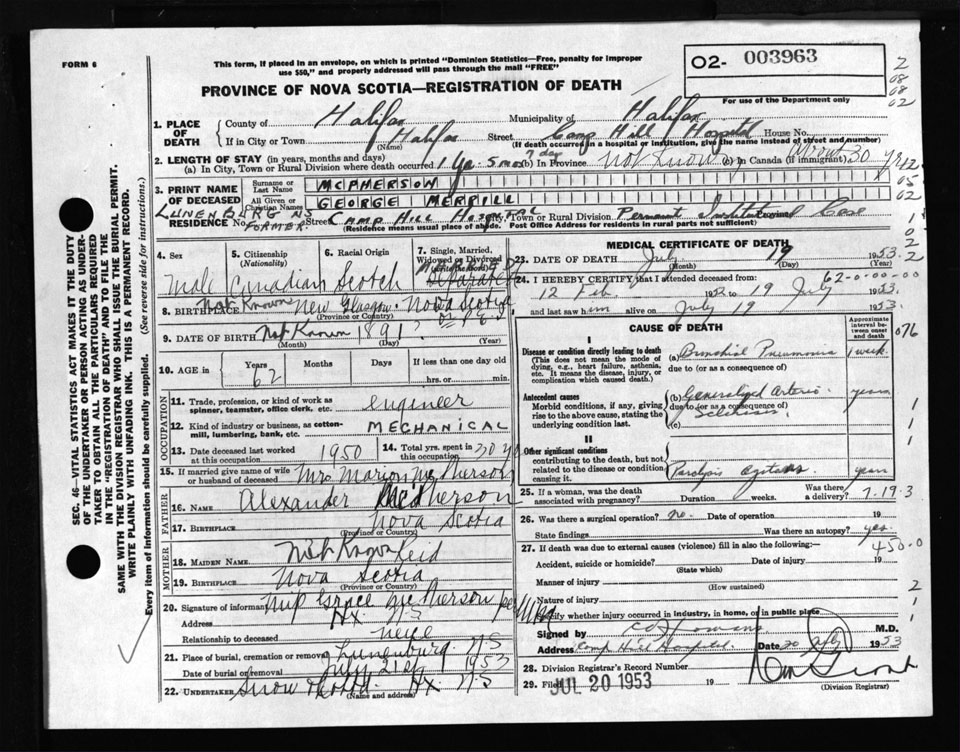 FORM 6
This form, if placed in an envelope, on which is printed "Dominion Statistics—Free, penalty for improper
use $50," and properly addressed will pass through the mail "FREE"
O2- 003963
PROVINCE OF NOVA SCOTIA—REGISTRATION OF DEATH
For use of the Department only
1. PLACE OF DEATH
County of Halifax Municipality of Halifax
If in City or Town Halifax Street Camp Hill Hospital House No.
(Name) (If death occurred in a hospital or institution, give the name instead of street and number)
2. LENGTH OF STAY (in years, months and days)
(a) In City, Town or Rural Division where death occurred 1 yr. 5 mos 7 days (b) In Province Not Known (c) In Canada (if immigrant) 30 yrs
3. PRINT NAME OF DECEASED
Surname or Last Name MCPHERSON
All Given or Christian Names GEORGE MERRILL
LUNENBURG NS
RESIDENCE No. FORMER Street CAMP HILL HOSPITAL City, Town or Rural Division Permanent Institutional Case
(Residence means usual place of abode. Post Office Address for residents in rural parts not sufficient)
4. Sex Male
5. Citizenship (Nationality) Canadian
6. Racial Origin Scotch
7. Single, Married, Widowed or Divorced Separated
8. BIRTHPLACE Not Known New Glasgow Nova Scotia
(Province or Country)
9. DATE OF BIRTH Not Known 1891
(Month) (Day) (Year)
10. AGE in Years 62 Months Days If less than one day hrs. or min.
OCCUPATION
11. Trade, profession, or kind of work as spinner, teamster, office clerk, etc. engineer
12. Kind of industry or business, as cotton-mill, lumbering, bank, etc. MECHANICAL
13. Date deceased last worked at this occupation 1950
14. Total yrs. spent in this occupation 30 yrs
15. If married give name of wife or husband of deceased Mrs Marion McPherson
FATHER
16. NAME Alexander McPherson
17. BIRTHPLACE Nova Scotia
MOTHER
18. MAIDEN NAME Not Known Reid
19. BIRTHPLACE Nova Scotia
(Province or Country)
20. Signature of informant Miss Grace McPherson per
Address Hx. NS
Relationship to deceased neice
21. Place of burial, cremation or removal Lunenburg NS
Date of burial or removal July 21st 1953
22. UNDERTAKER Snow Hx. NS
(Name and address)
MEDICAL CERTIFICATE OF DEATH
23. DATE OF DEATH July 19 1953
(Month) (Day) (Year)
24. I HEREBY CERTIFY, that I attended deceased from:
12 Feb 1952 to 19 July 1953
and last saw him alive on July 19 1953
62-0-00-00
CAUSE OF DEATH
Approximate interval between onset and death
I
Disease or condition directly leading to death
(This does not mean the mode of dying, e.g., heart failure, asthenia, etc. It means the disease, injury, or complication which caused death.)
(a) Bronchial Pneumonia 1 week
due to (or as a consequence of)
Antecedent causes
Morbid conditions, if any, giving rise to the above cause, stating the underlying condition last.
(b) Generalized Arterio years
due to (or as a consequence of)
Sclerosis
(c)
II
Other significant conditions
contributing to the death, but not related to the disease or condition causing it.
Paralysis Agitans years
25. If a woman, was the death associated with pregnancy? Duration weeks. Was there a delivery?
7-19-3
26. Was there a surgical operation? no. Date of operation 19
State findings Was there an autopsy? yes.
27. If death was due to external causes (violence) fill in also the following:—
450-0
Accident, suicide or homicide? Date of injury 19
(State which)
Manner of injury
(How sustained)
Nature of injury
Specify whether injury occurred in industry, in home, or in public place
Signed by M.D.
Address Camp Hill Hospital Date 20 July 1953
28. Division Registrar's Record Number
29. Filed JUL 20 1953 19
(Division Registrar)
SEC. 46—VITAL STATISTICS ACT MAKES IT THE DUTY
OF THE UNDERTAKER OR PERSON ACTING AS UNDERTAKER
TO OBTAIN ALL THE PARTICULARS REQUIRED
IN THE "REGISTRATION OF DEATH" AND TO FILE THE
SAME WITH THE DIVISION REGISTRAR WHO SHALL ISSUE THE BURIAL PERMIT.
WRITE PLAINLY WITH UNFADING INK. THIS IS A PERMANENT RECORD.
Every item of information should be carefully supplied. (See reverse side for instructions.)